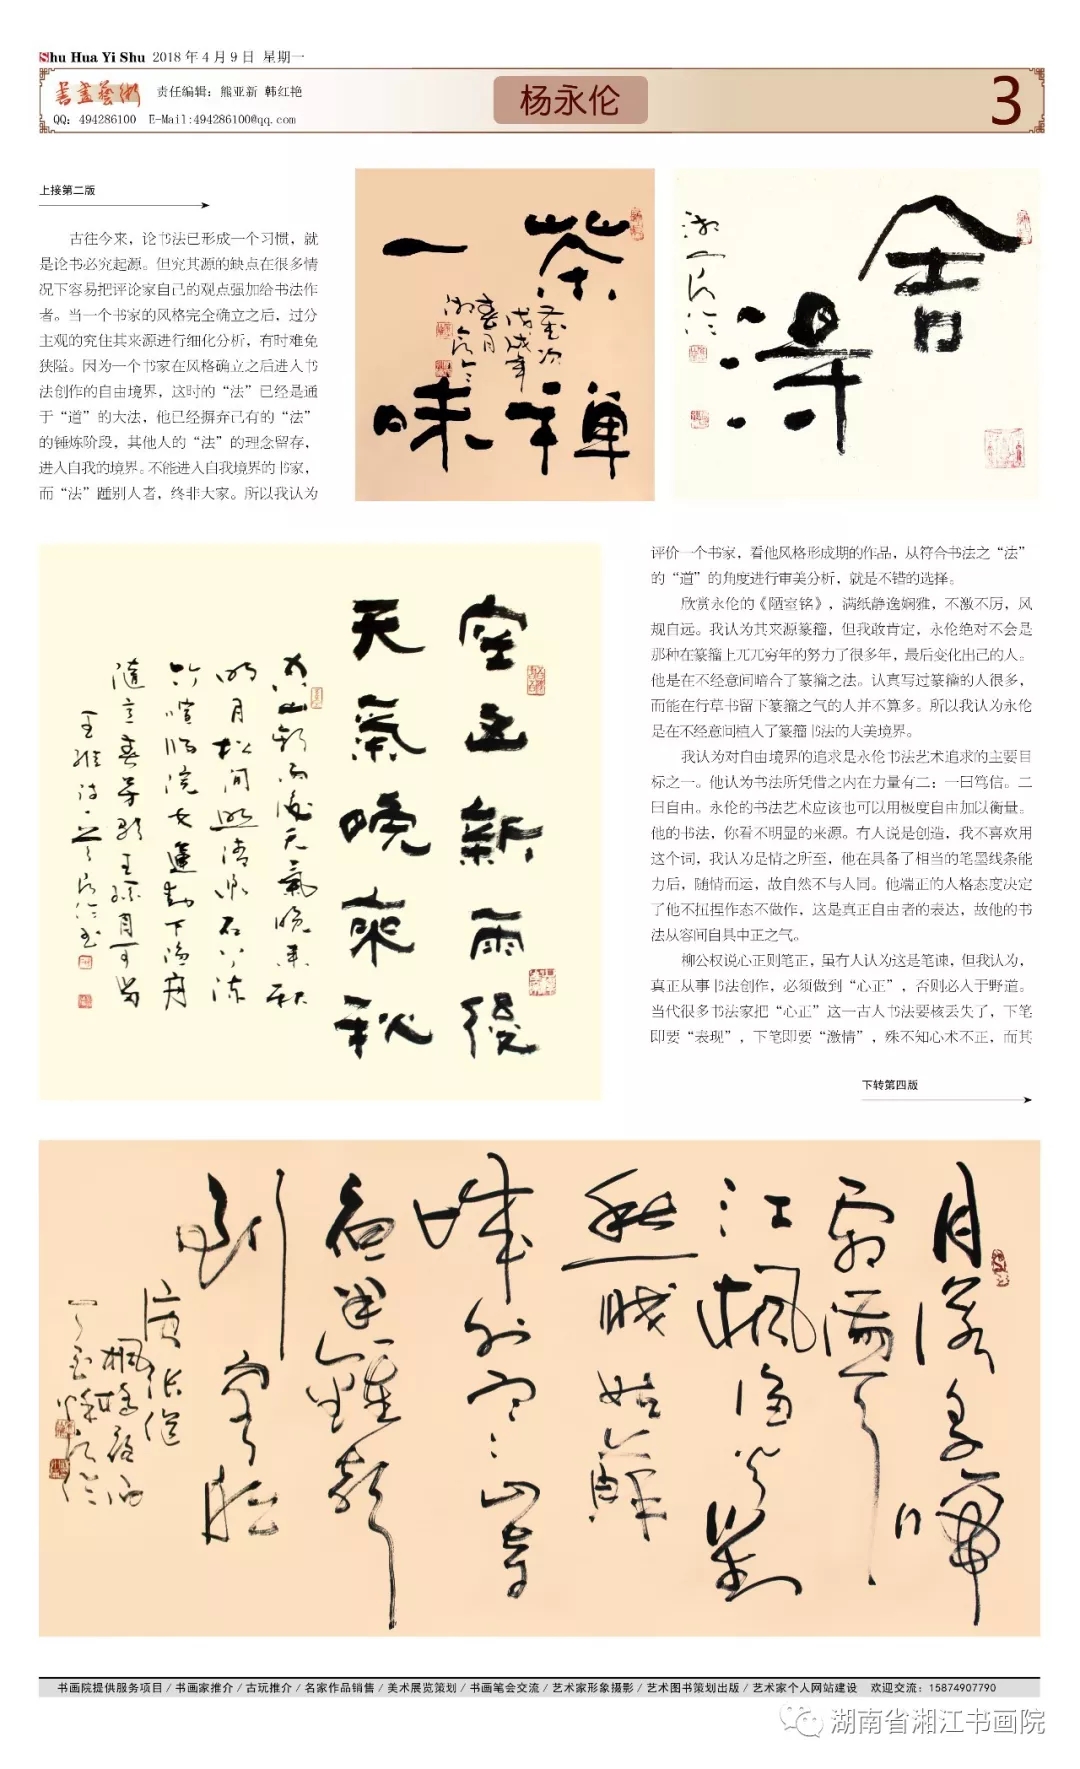 Shu Hua Yi Shu 2018年4月9日 星期一
書畫藝術
责任编辑：熊亚新 韩红艳
QQ：494286100 E-Mail:494286100@qq.com
杨永伦
3
上接第二版
古往今来，论书法已形成一个习惯，就
是论书必究起源。但究其源的缺点在很多情
况下容易把评论家自己的观点强加给书法作
者。当一个书家的风格完全确立之后，过分
主观的究住其来源进行细化分析，有时难免
狭隘。因为一个书家在风格确立之后进入书
法创作的自由境界，这时的“法”已经是通
于“道”的大法，他已经摒弃已有的“法”
的锤炼阶段，其他人的“法”的理念留存，
进入自我的境界。不能进入自我境界的书家，
而“法”踵别人者，终非大家。所以我认为
茶禅
一味
戊戌年
春月
舍得
评价一个书家，看他风格形成期的作品，从符合书法之“法”
的“道”的角度进行审美分析，就是不错的选择。
欣赏永伦的《陋室铭》，满纸静逸娴雅，不激不厉，风
规自远。我认为其来源篆籀，但我敢肯定，永伦绝对不会是
那种在篆籀上兀兀穷年的努力了很多年，最后变化出己的人。
他是在不经意间暗合了篆籀之法。认真写过篆籀的人很多，
而能在行草书留下篆籀之气的人并不算多。所以我认为永伦
是在不经意间植入了篆籀书法的大美境界。
我认为对自由境界的追求是永伦书法艺术追求的主要目
标之一。他认为书法所凭借之内在力量有二：一曰笃信。二
曰自由。永伦的书法艺术应该也可以用极度自由加以衡量。
他的书法，你看不明显的来源。有人说是创造，我不喜欢用
这个词，我认为是情之所至，他在具备了相当的笔墨线条能
力后，随情而运，故自然不与人同。他端正的人格态度决定
了他不扭捏作态不做作，这是真正自由者的表达，故他的书
法从容间自具中正之气。
柳公权说心正则笔正，虽有人认为这是笔谏，但我认为，
真正从事书法创作，必须做到“心正”，否则必入于野道。
当代很多书法家把“心正”这一古人书法要核丢失了，下笔
即要“表现”，下笔即要“激情”，殊不知心术不正，而其
下转第四版
空山新雨後
天氣晚來秋
空山新雨後天氣晚來秋
明月松间照清泉石上流
竹喧归浣女蓮動下渔舟
隨意春芳歇王孫自可留
王維诗一首
月落烏啼
霜满天
江枫渔火對
愁眠姑蘇
城外寒山寺
夜半鐘聲
到客船
唐張继
枫橋夜泊
书画院提供服务项目/书画家推介/古玩推介/名家作品销售/美术展览策划/书画笔会交流/艺术家形象摄影/艺术图书策划出版/艺术家个人网站建设 欢迎交流：15874907790
湖南省湘江书画院